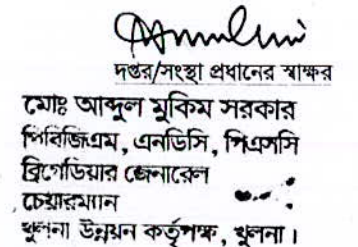 দপ্তর/সংস্থা প্রধানের স্বাক্ষর
মোঃ আব্দুল মুকিম সরকার
পিবিজিএম, এনডিসি, পিএসসি
ব্রিগেডিয়ার জেনারেল
চেয়ারম্যান
খুলনা উন্নয়ন কর্তৃপক্ষ, খুলনা।